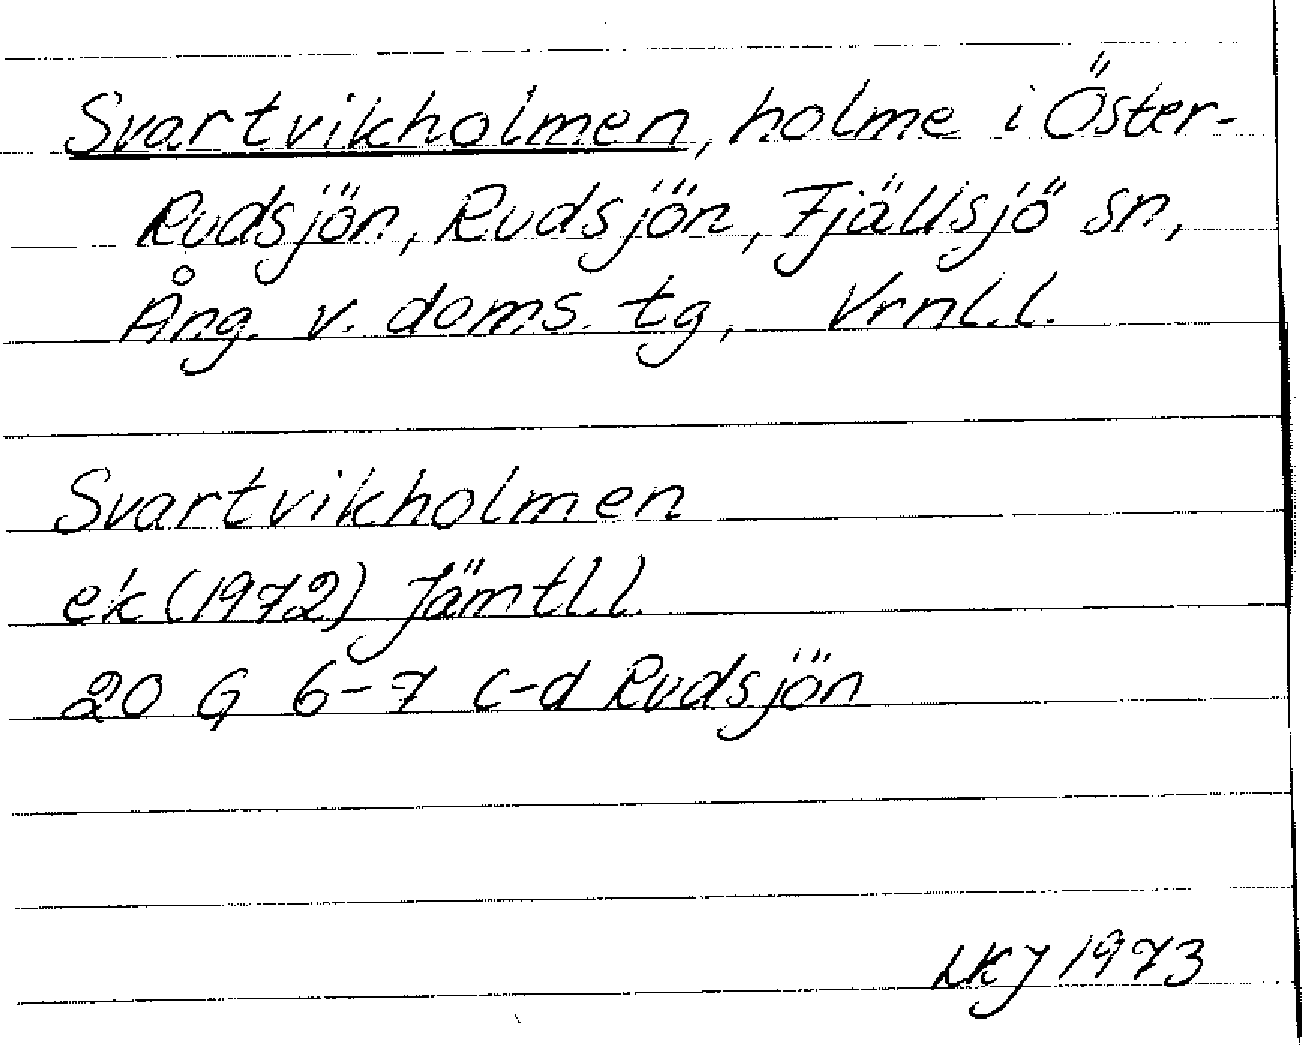 Svartvikholmen, holme i Öster-
Rudsjön, Rudsjön, Fjällsjö sn,
Ång. v. doms. tg, Vrnl.l.
Svartvikholmen
ek (1972) Jämtl.l.
20 G 6-7 c-d Rudsjön
LKJ 1973